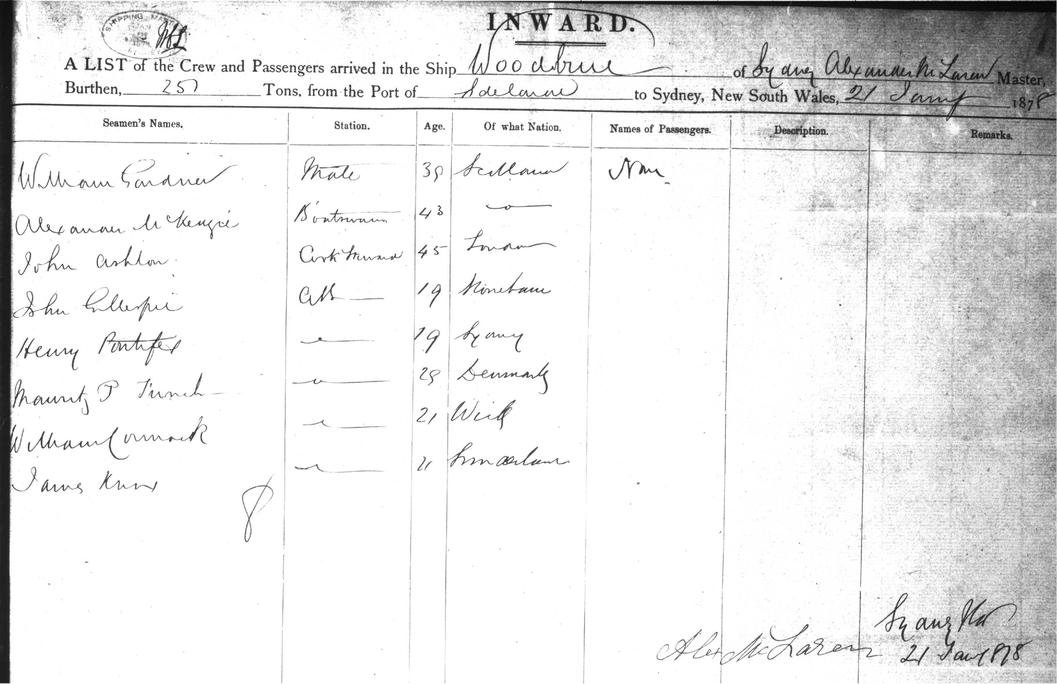 SHIPPING MASTER
INWARD.
A LIST of the Crew and Passengers arrived in the Ship Woodbine of Sydney Alexander McLaren Master,
Burthen, 257 Tons, from the Port of Adelaide to Sydney, New South Wales, 21 Jany 1878
Seamen's Names. Station. Age. Of what Nation. Names of Passengers. Description. Remarks.
William Gardner Mate 39 Scotland
Alexander McKenzie Boatswain 43 —o—
John Ashton Cook & Steward 45 London
John Gillespie AB 19
Henry Pontifex 19 Sydney
Mauritz P 28 Denmark
William Cormack 21 Wick
James 21 Sunderland
8
Sydney NSW
Alex McLaren 21 Jany 1878